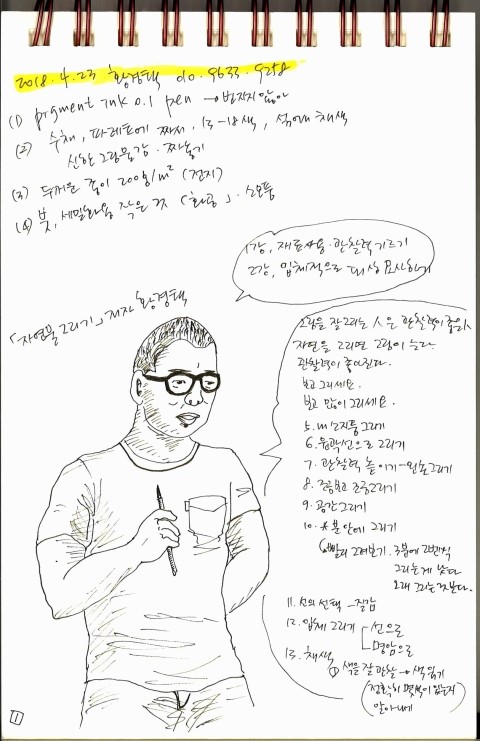 2018.4.23 황경택 010.9633.9258
(1) prgment ink 0.1 pen → 번지지 않아
(2) 수채, 파레트에 짜서, 13-18색, 섞어 채색
신한 그림물감. 짜놓기
(3) 두꺼운 종이 200g/m² (전지)
(4) 붓, 세밀화용 작은 것 (화공). 소모품
1강, 재료사용. 관찰력 기르기
2강, 입체적으로 대상 묘사하기
「자연물그리기」저자 황경택
그림을 잘그리는 人은 관찰력이 좋읍
자연을 그리면 그림이 는다
관찰력이 좋아진다.
보고 그리세요.
보고 많이 그리세요.
5. 그리기
6. 윤곽선으로 그리기
7. 관찰력 높이기 - 그리기
8. 조금보고 조금그리기
9. 공간그리기
10. 분 안에 그리기
빨리 그려보기.
그리는게 낫다
오래 그리는것보다.
11. 선의 선택 - 질감
12. 입체 그리기 선으로
명암으로
13. 채색
① 색을 잘 관찰 → 색 읽기
(정확히 몇색이 있는지
알아내기)
11